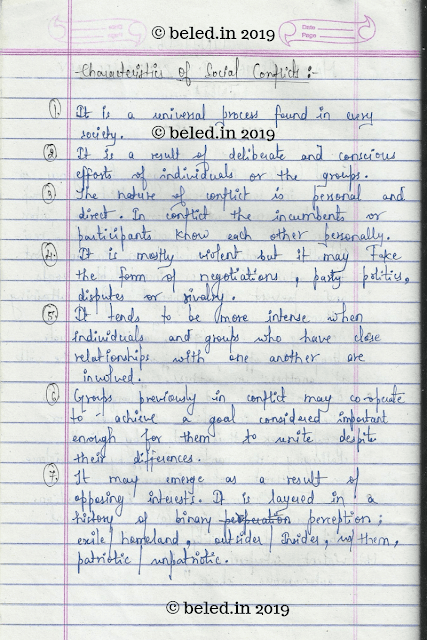 © beled.in 2019
Date
Page
- Characteristics of Social Conflicts :-
1. It is a universal process found in every
society.
© beled.in 2019
2. It is a result of deliberate and conscious
efforts of individuals or the groups.
3. The nature of conflict is personal and
direct. In conflict the incumbents or
participants know each other personally.
4. It is mostly violent but it may take
the form of negotiations, party politics,
disputes or rivalry.
5. It tends to be more intense when
individuals and groups who have close
relationships with one another are
involved.
6 Groups previously in conflict may co-operate
to achieve a goal considered important
enough for them to unite despite
their differences.
7. It may emerge as a result of
opposing interests. It is layered in a
history of binary perception;
exile/homeland, outsider/Insider, us/them,
patriotic/unpatriotic.
© beled.in 2019